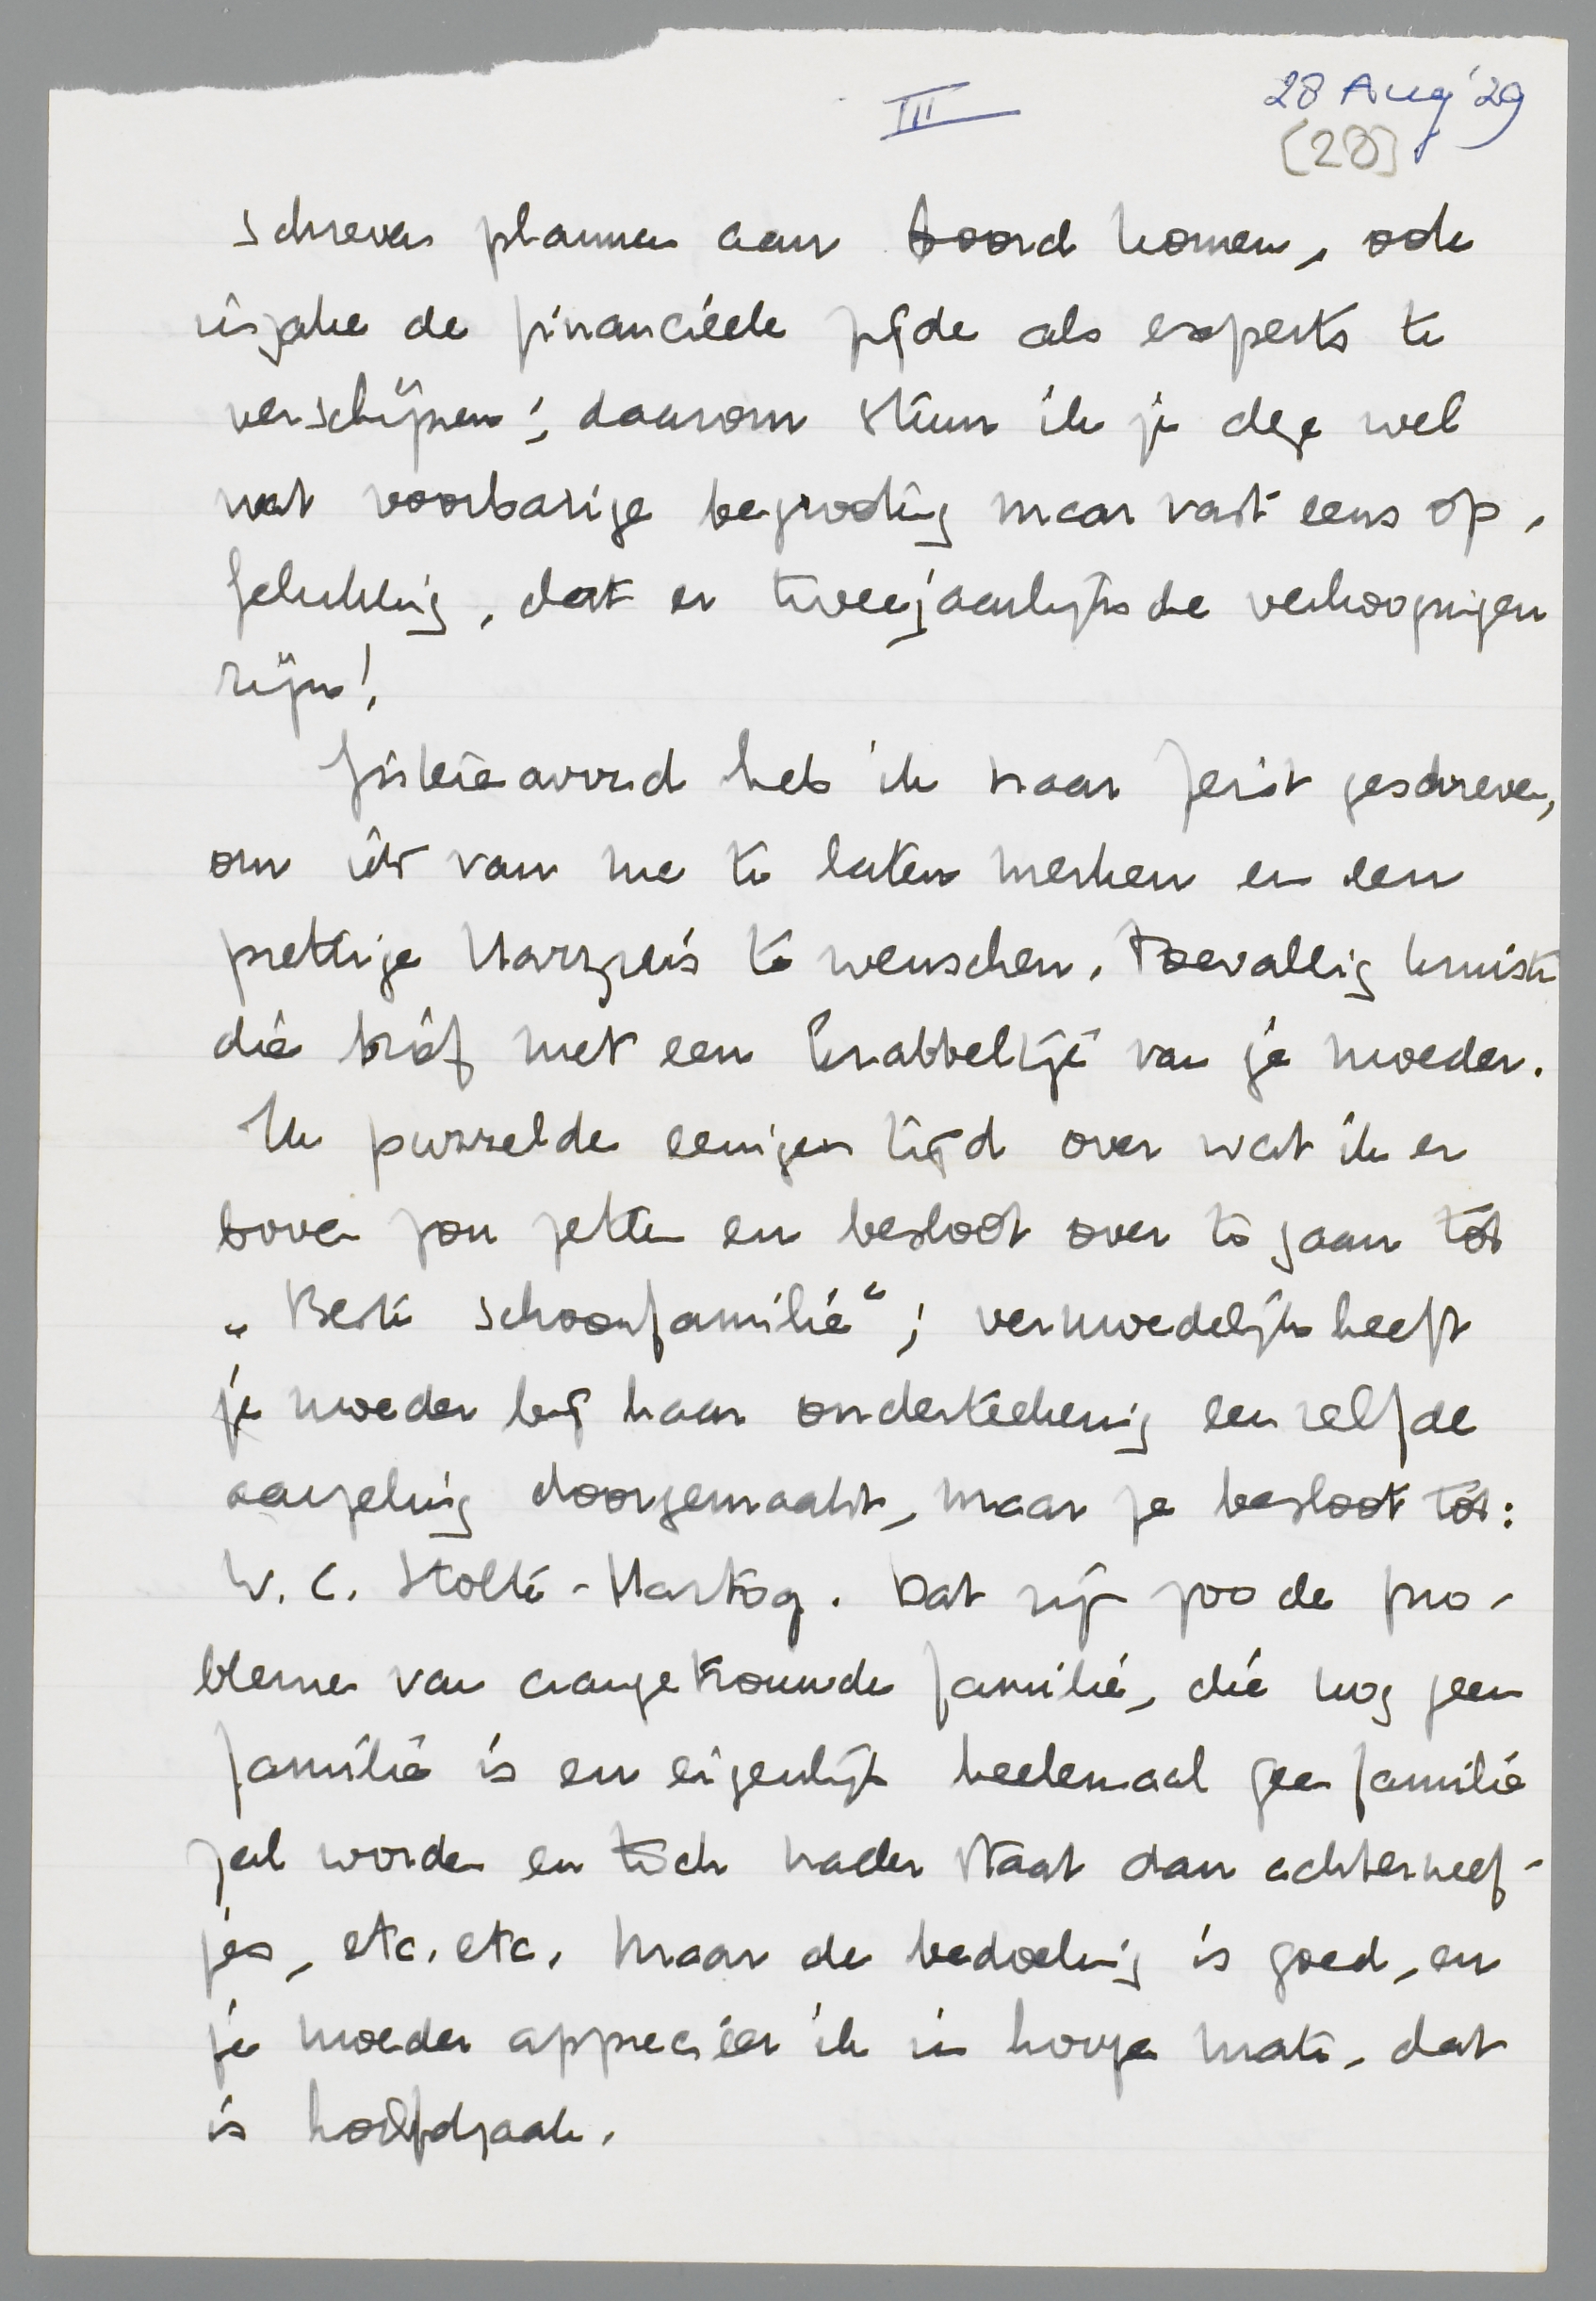 III
28 Aug '29
[28]
schreven plannen aan boord komen, ook
inzake de financiëele zijde als experts te
verschijnen!; daarom stuur ik je deze wel
wat voorbarige begrooting maar vast eens op.
Gelukkig, dat er tweejaarlijksche verhoogingen
zijn!
Gisterenavond heb ik naar Zeist geschreven,
om iets van me te laten merken en een
prettige Harzreis te wenschen. Toevallig kruiste
die brief met een krabbeltje van je moeder.
Ik puzzelde eenigen tijd over wat ik er
boven zou zetten en besloot over te gaan tot
„Beste schoonfamilie"; vermoedelijk heeft
je moeder bij haar onderteekening eenzelfde
aarzeling doorgemaakt, maar ze besloot tot:
W. C. Stolte-Hartog. Dat zijn zoo de pro-
blemen van aangetrouwde familie, die nog geen
familie is en eigenlijk heelemaal geen familie
zal worden en toch nader staat dan achterneef-
jes, etc. etc. Maar de bedoeling is goed, en
je moeder apprecieer ik in hooge mate, dat
is hoofdzaak.